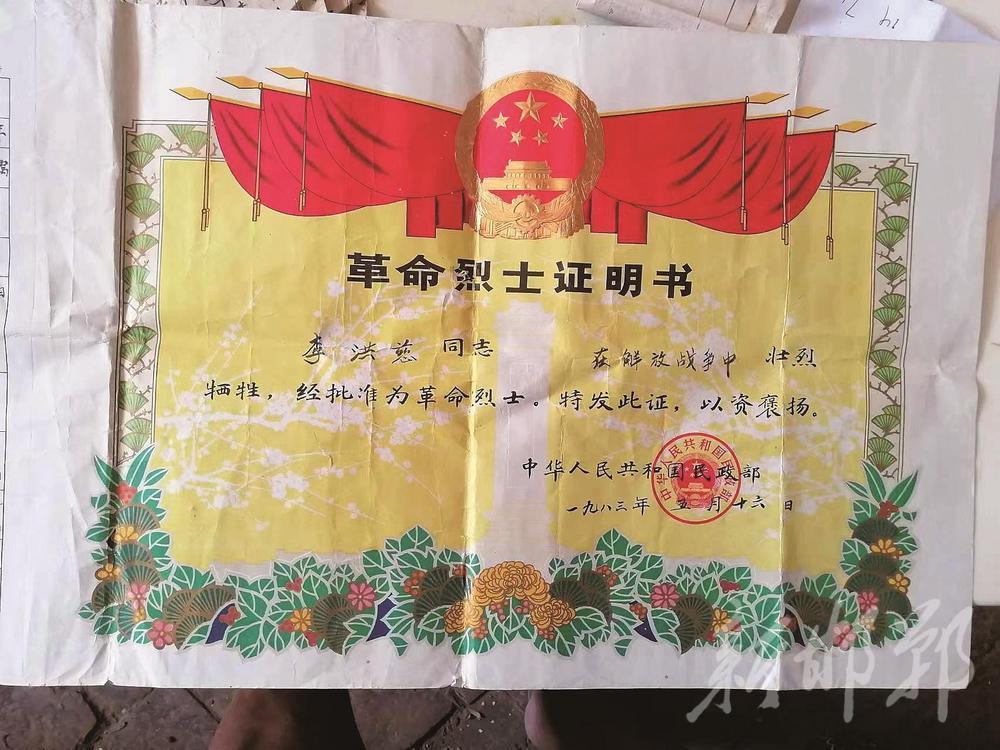 革命烈士证明书
李洪慈 同志 在解放战争中 壮烈
牺牲，经批准为革命烈士。特发此证，以资褒扬。
中华人民共和国民政部
中华人民共和国民政部
一九八三年 五月十六日
新邯郸